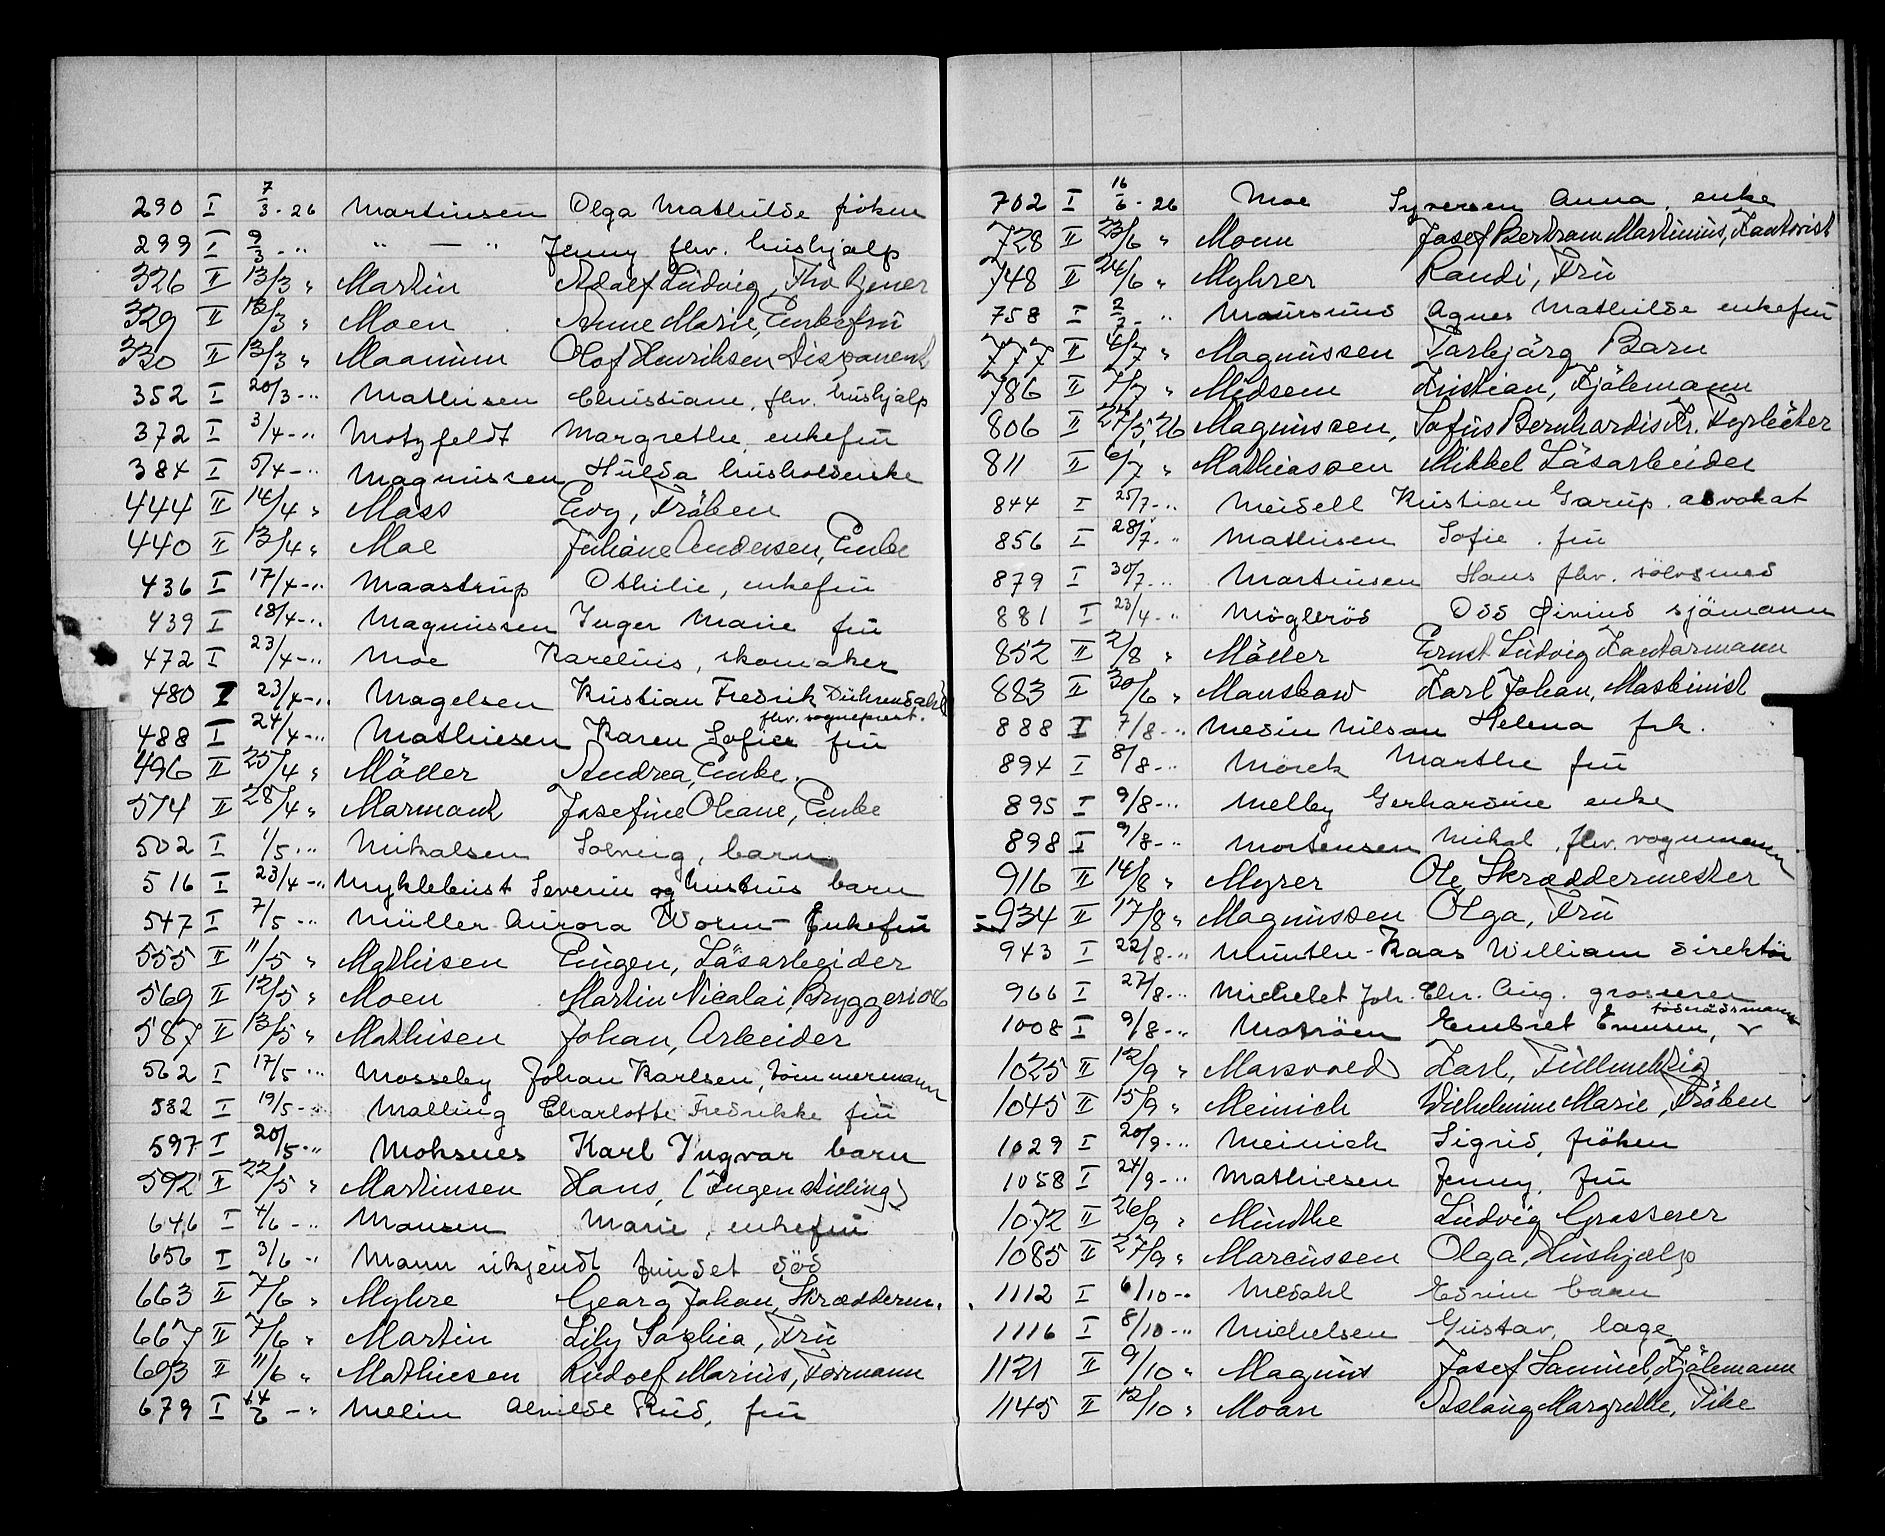 290 I 7/3 - 26 Martinsen Olga Mathilde fröken
299 I 9/3 - " " — " Jenny fhv. hushjælp
326 II 13/3 " Martin Adolf Ludvig,
329 II 13/3 " Moen Anne Marie, Enkefru
330 II 13/3 " Maamum Olof Henriksen Disponent
352 I 20/3 - " Mathisen Christiane, fhv. hushjælp
372 I 3/4 - " Motzfeldt Margrethe enkefru
384 I 5/4 - " Magnussen Hulda husholderske
444 II 14/4 " Mass Evy, Fröken
440 II 13/4 " Moe Juliane Andersen, Enke
436 I 17/4 - " Maastrup Othilie, enkefru
439 I 18/4 - " Magnussen Inger Marie fru
472 I 23/4 - " Moe Karelius, skomaker
480 I 23/4 - " Magelsen Kristian Fredrik Dührendahl
fhv. sogneprest.
488 I 24/4 - " Mathiesen Karen Sofie fru
496 II 25/4 " Möller Andrea, Enke.
574 II 28/4 " Marmank Josefine Oleane, Enke
502 I 1/5 - " Mikalsen Solveig, barn
516 I 23/4 - " Myklebust Severin og hustrus barn
547 I 7/5 - " Müller Aurora Worm - Enkefru
555 II 11/5 " Mathisen Eugen, Läsarbeider
569 II 12/5 " Moen Martin Nicolai,
587 II 13/5 " Mathisen Johan, Arbeider
562 I 17/5 - " Mosseby Johan Karlsen, tömmermann
582 I 19/5 - " Malling Charlotte Fredrikke fru
597 I 20/5 - " Moksnes Karl Yngvar barn
592 II 22/5 " Martinsen Hans, (Ingen stilling)
646 I 4/6 - " Monsen Marie, enkefru
656 I 3/6 - " Mann ukjendt fundet död
663 II 7/6 " Myhre Georg Johan, Skrædderm.
667 II 7/6 " Martin Lily Sophia, Fru
693 II 11/6 " Mathiesen Rudolf Marius, Formann
679 I 14/6 - " Melin Alvilde Rud, fru
702 I 16/6 - 26 Moe Syversen Anna, enke
728 II 23/6 " Moum Josef Bertram Martinius, Kontorist
748 II 24/6 " Myhrer Randi, Fru
758 I 2/7 - " Moursund Agnes Mathilde enkefru
777 II 4/7 " Magnussen Torbjörg Barn
786 II 7/7 " Midsem Kristian, Kjölemann
806 II 27/5, 26 Magnussen, Sofus Bernhardis Kr. Fyrböter
811 II 6/7 " Mathiassen Mikkel Läsarbeider
844 I 25/7 - " Meidell Kristian Garup. advokat
856 I 28/7 - " Mathisen Sofie. fru
879 I 30/7 - " Martinsen Hans fhv. sölvsmed
881 I 23/4 - " Möglerös Odd Eivind sjömann
852 II 2/8 " Möller Ernst Ludvig Kontormann
883 II 30/6 " Manskow Karl Johan, Maskinist
888 I 7/8 - " Medin Nilsen Helena frk.
894 I 8/8 - " Mörck Marthe fru
895 I 9/8 - " Melby Gerhardine enke
898 I 9/8 - " Mortensen Mikal, fhv. vognmann
916 II 14/8 " Myrer Ole, Skræddermester
934 II 17/8 " Magnussen Olga, Fru
943 I 22/8 - " Munthe-Kaas William direktör
966 I 27/8 - " Michelet Joh. Chr. Aug. grosserer
1008 I 9/8 - " Moström Embret Evensen,
1025 II 12/9 " Marsvold Karl, Fuldmektig
1045 II 15/9 " Meinich Wilhelmine Marie, Fröken
1029 I 20/9 - " Meinich Sigrid, fröken
1058 I 24/9 - " Mathiesen Jenny, fru
1072 II 26/9 " Minthe Ludvig Grosserer
1085 II 27/9 " Marcussen Olga, Hushjælp
1112 I 6/10 - " Medahl Edvin barn
1116 I 8/10 - " Michelsen Gustav, læge
1121 II 9/10 " Magnus Josef Samuel, Kjölemann
1145 II 12/10 " Moan Aslaug Margrethe, Pike